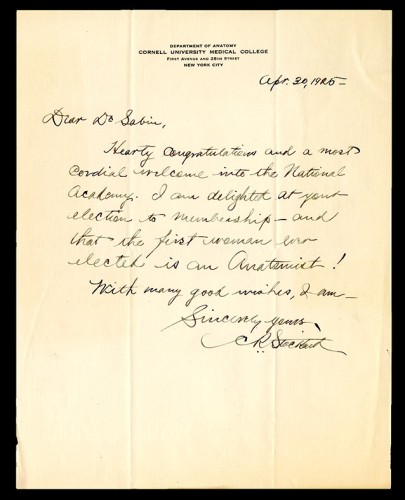 DEPARTMENT OF ANATOMY
CORNELL UNIVERSITY MEDICAL COLLEGE
FIRST AVENUE AND 28TH STREET
NEW YORK CITY
Apr. 30, 1925-
Dear Dr Sabin,
Hearty Congratulations and a most
cordial welcome into the National
Academy. I am delighted at your
election to membership - and
that the first woman ever
elected is an Anatomist!
With many good wishes, I am -
Sincerely yours,
C.R. Stockard